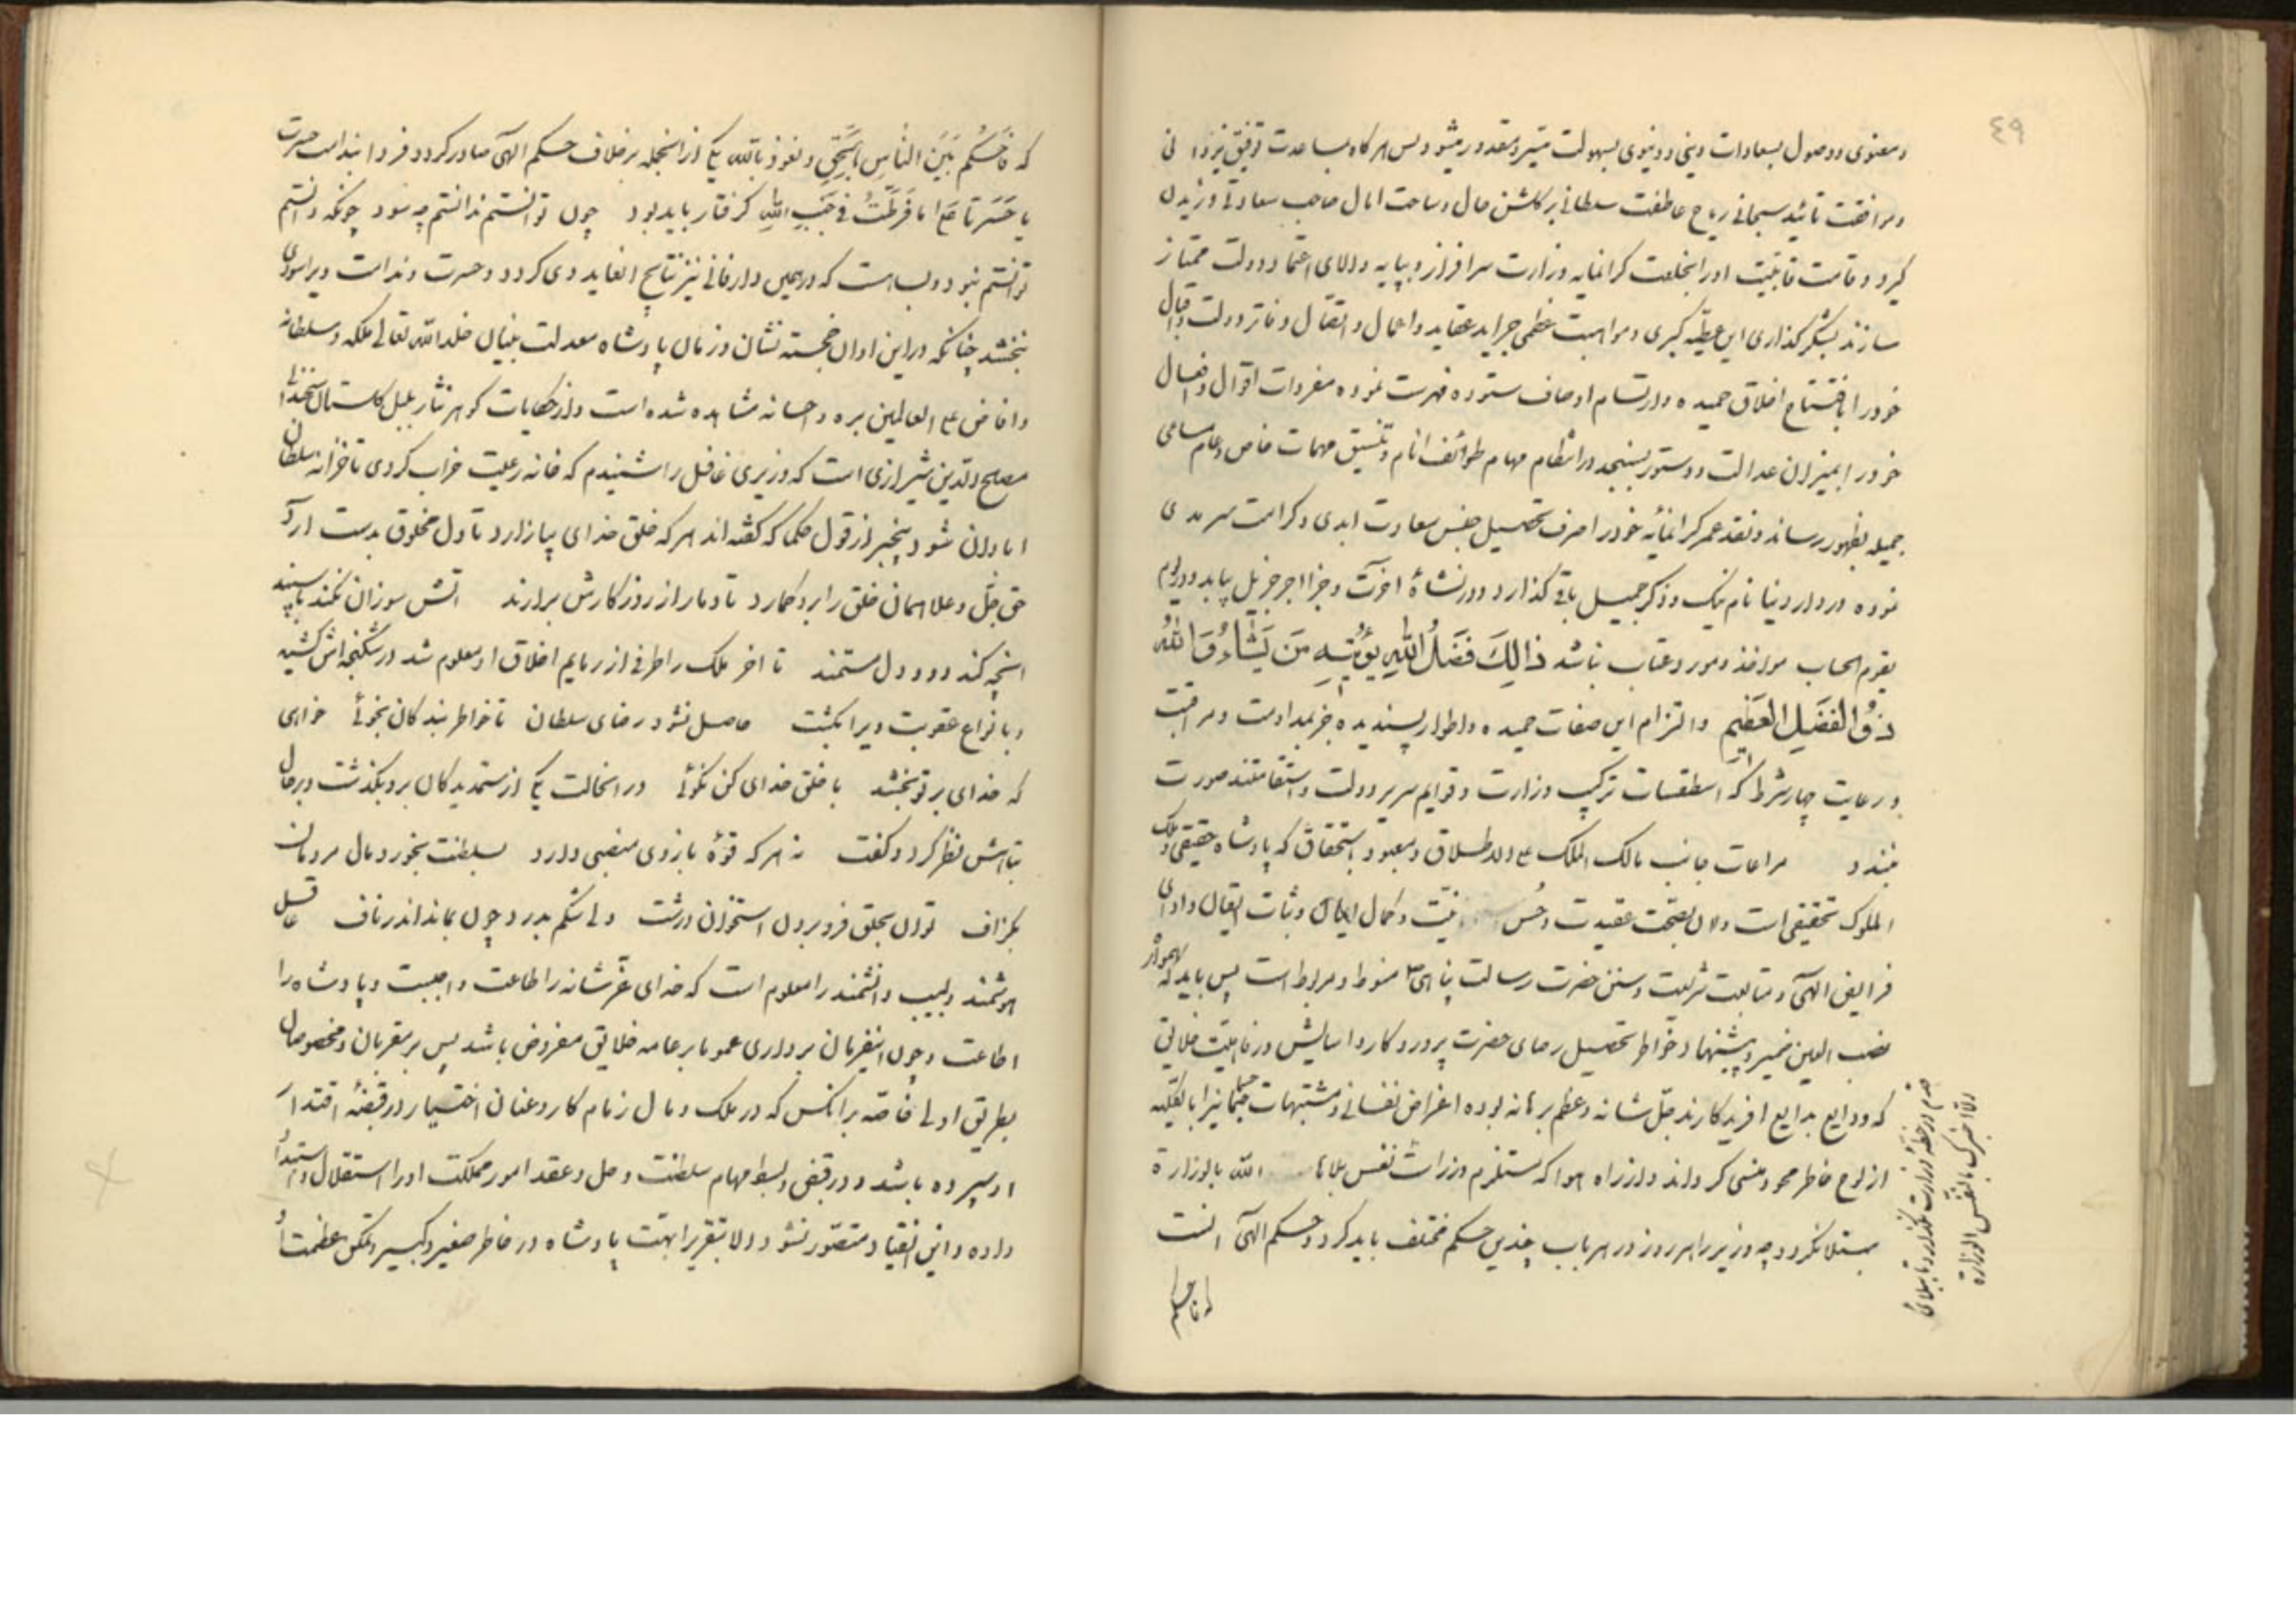 ٤٩
و معنوی و وصول بسعادات دینی و دنیوی بسهولت میسر و مقدور میشود پس هرکاه مساعدت توفیق یزدانی
و مرافقت تائید سبحانی ریاح عاطفت سلطانی برکلشن حال و ساحت امال صاحب سعادتی وزیدن
کیرد و قامت قابلیت او را بخلعت کرانمایه وزارت سرافراز و بپایه والای اعتماد دولت ممتاز
سازند بشکرکذاری این عطیّه کبری و مواهبت عظمی جراید عقاید و اعمال و اتقال دفاتر دولت و اقبال
خود را بافتتاح اخلاق حمیده و ارتسام اوصاف ستوده فهرست نموده مفردات اقوال و افعال
خود را بمیزان عدالت و دستور بسنجد و در انتظام مهام طوائف انام و تنسیق مهمات خاص و عام مساعی
جمیله بظهور رساند و نقد عمر کرانمایه خود را صرف تحصیل جنس سعادت ابدی و کرامت سرمدی
نموده در دار دنیا نام نیک و ذکر جمیل باقی کذارد و در نشاهٔ اخرت و جزا اجر جزیل یابد و در یوم
یقوم الحساب مواخذ و مورد عتاب نباشد ذالِكَ فَضلُ اللهِ يؤتيهِ مَن يَشَاءُ وَاللهُ
ذُو الفَضلِ العَظيمِ و التزام این صفات حمیده و اطوار پسندیده جز بمداومت و مراقبت
و رعایت چهار شرط که اسطقسات ترکیب وزارت و قوایم سریر دولت و استقامتند صورت
نبندد مراعات جانب مالک الملک علی الاطلاق و معبود باستحقاق که پادشاه حقیقی و ملک
الملوک تحقیقی است و ان بصحّت عقیدت و حُسن نیّت و کمال ایمان و ثبات ایقان و ادای
فرایض الهی و متابعت شریعت و سنن حضرت رسالت پناهی ص منوط و مربوط است پس باید که همواره
نصب العین ضمیر و پیشنهاد خواطر تحصیل رضای حضرت پروردکار و اسایش و رفاهیت خلایق
که ودایع بدایع افریدکارند جلّ شانه و عظم برهانه بوده اغراض نفسانی و مشتبهات جسمانی را بالکلیه
از لوح خاطر محو و منسی کرداند و از راه هوا که مستلزم وزرات نفس بلاها الله بالوزارة
مبتلا نکردد چه وزیر را هر روز در هر باب چندین حکم مختلف باید کرد و حکم الهی انست
که فاحکم
که فَاحكُم بَينَ النّاسِ بِالحَقِّ و نعوذ بالله یکی از انجمله برخلاف حکم الهی صادر کردد فردا بندامت حسرت
یا حَسرَتا عَلی ما فَرَّطتُ في جَنبِ اللهِ کرفتار باید بود چون توانستم ندانستم چه سود چونکه دانستم
توانستم نبود و بسا هست که در همین دار فانی نیز نتایج انعاید وی کردد و حسرت و ندامت ویرا سودی
نبخشد چنانکه در این اوان خجسته نشان و زمان پادشاه معدلت بنیان خلد الله تعالی ملکه و سلطانه
و افاض علی العالمین بره و احسانه مشاهده شده است و از حکایات کوهر نثار بلبل کلستان سخندانی
مصلح الدین شیرازی است که وزیری غافل را شنیدم که خانه رعیت خراب کردی تا خزانه سلطان
ابادان شود بیخبر از قول حکما که کفته اند هر که خلق خدای بیازارد تا دل مخلوق بدست ارد
حق جلّ و علا همان خلق را بر او کمارد تا دمار از روزکارش برارند اتش سوزان نکند با سپند
انچه کند دود دل مستمند تا اخر ملک را طرفی از ذمایم اخلاق او معلوم شد در شکنجه اش کشید
و بانواع عقوبت ویرا بکشت حاصل نشود رضای سلطان تا خواطر بندکان نجوئی خواهی
که خدای بر تو بخشد با خلق خدای کن نکوئی در انحالت یکی از ستمدیدکان برو بکذشت و برحال
تباهش نظر کرد و کفت نه هر که قوّهٔ بازوی منصبی دارد بسلطنت بخورد مال مردمان
بکزاف توان بحلق فرو بردن استخوان درشت ولی شکم بدرد چون بماند اندر ناف عاقل
هوشمند و لبیب دانشمند را معلوم است که خدای عزّ شانه را طاعت واجبست و پادشاه را
اطاعت و چون اینفرمان برداری عموما بر عامه خلایق مفروض باشد پس بر مقربان و مخصوصان
بطریق اولی خاصّه برانکس که در ملک و مال زمام کار و عنان اختیار در قبضهٔ اقتدار
او سپرده باشد و در قبض و بسط مهام سلطنت و حل و عقد امور مملکت او را استقلال و استبداد
داده و این انقیاد متصوّر نشود الا بتقریر ابهّت پادشاه در خاطر صغیر و کبیر و تمکن عظمت او